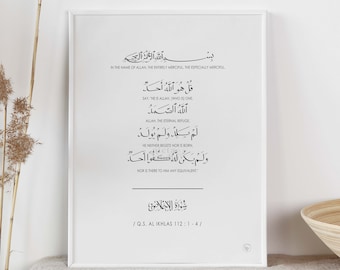 بِسْمِ اللَّهِ الرَّحْمَٰنِ الرَّحِيمِ
IN THE NAME OF ALLAH, THE ENTIRELY MERCIFUL, THE ESPECIALLY MERCIFUL.
قُلْ هُوَ اللَّهُ أَحَدٌ
SAY, "HE IS ALLAH, [WHO IS] ONE,
اللَّهُ الصَّمَدُ
ALLAH, THE ETERNAL REFUGE.
لَمْ يَلِدْ وَلَمْ يُولَدْ
HE NEITHER BEGETS NOR IS BORN,
وَلَمْ يَكُن لَّهُ كُفُوًا أَحَدٌ
NOR IS THERE TO HIM ANY EQUIVALENT."
سُورَةُ الإِخْلَاصِ
/ Q.S. AL IKHLAS 112 : 1 - 4 /